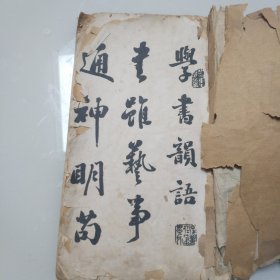 學書韻語
書雖藝事
通神明苟